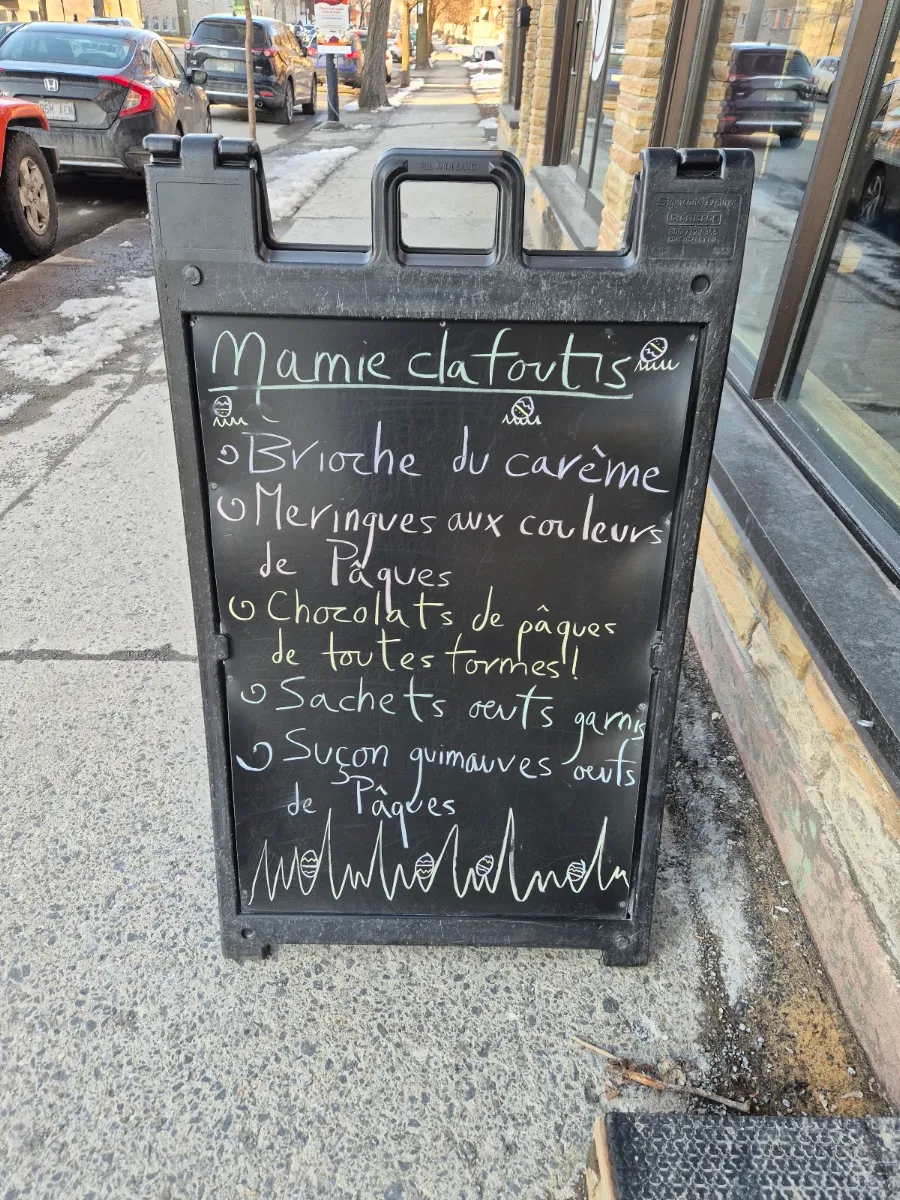 Mamie clafoutis
Brioche du carême
Meringues aux couleurs
de Pâques
Chocolats de pâques
de toutes formes!
Sachets oeufs garnis
Suçon guimauves oeufs
de Pâques